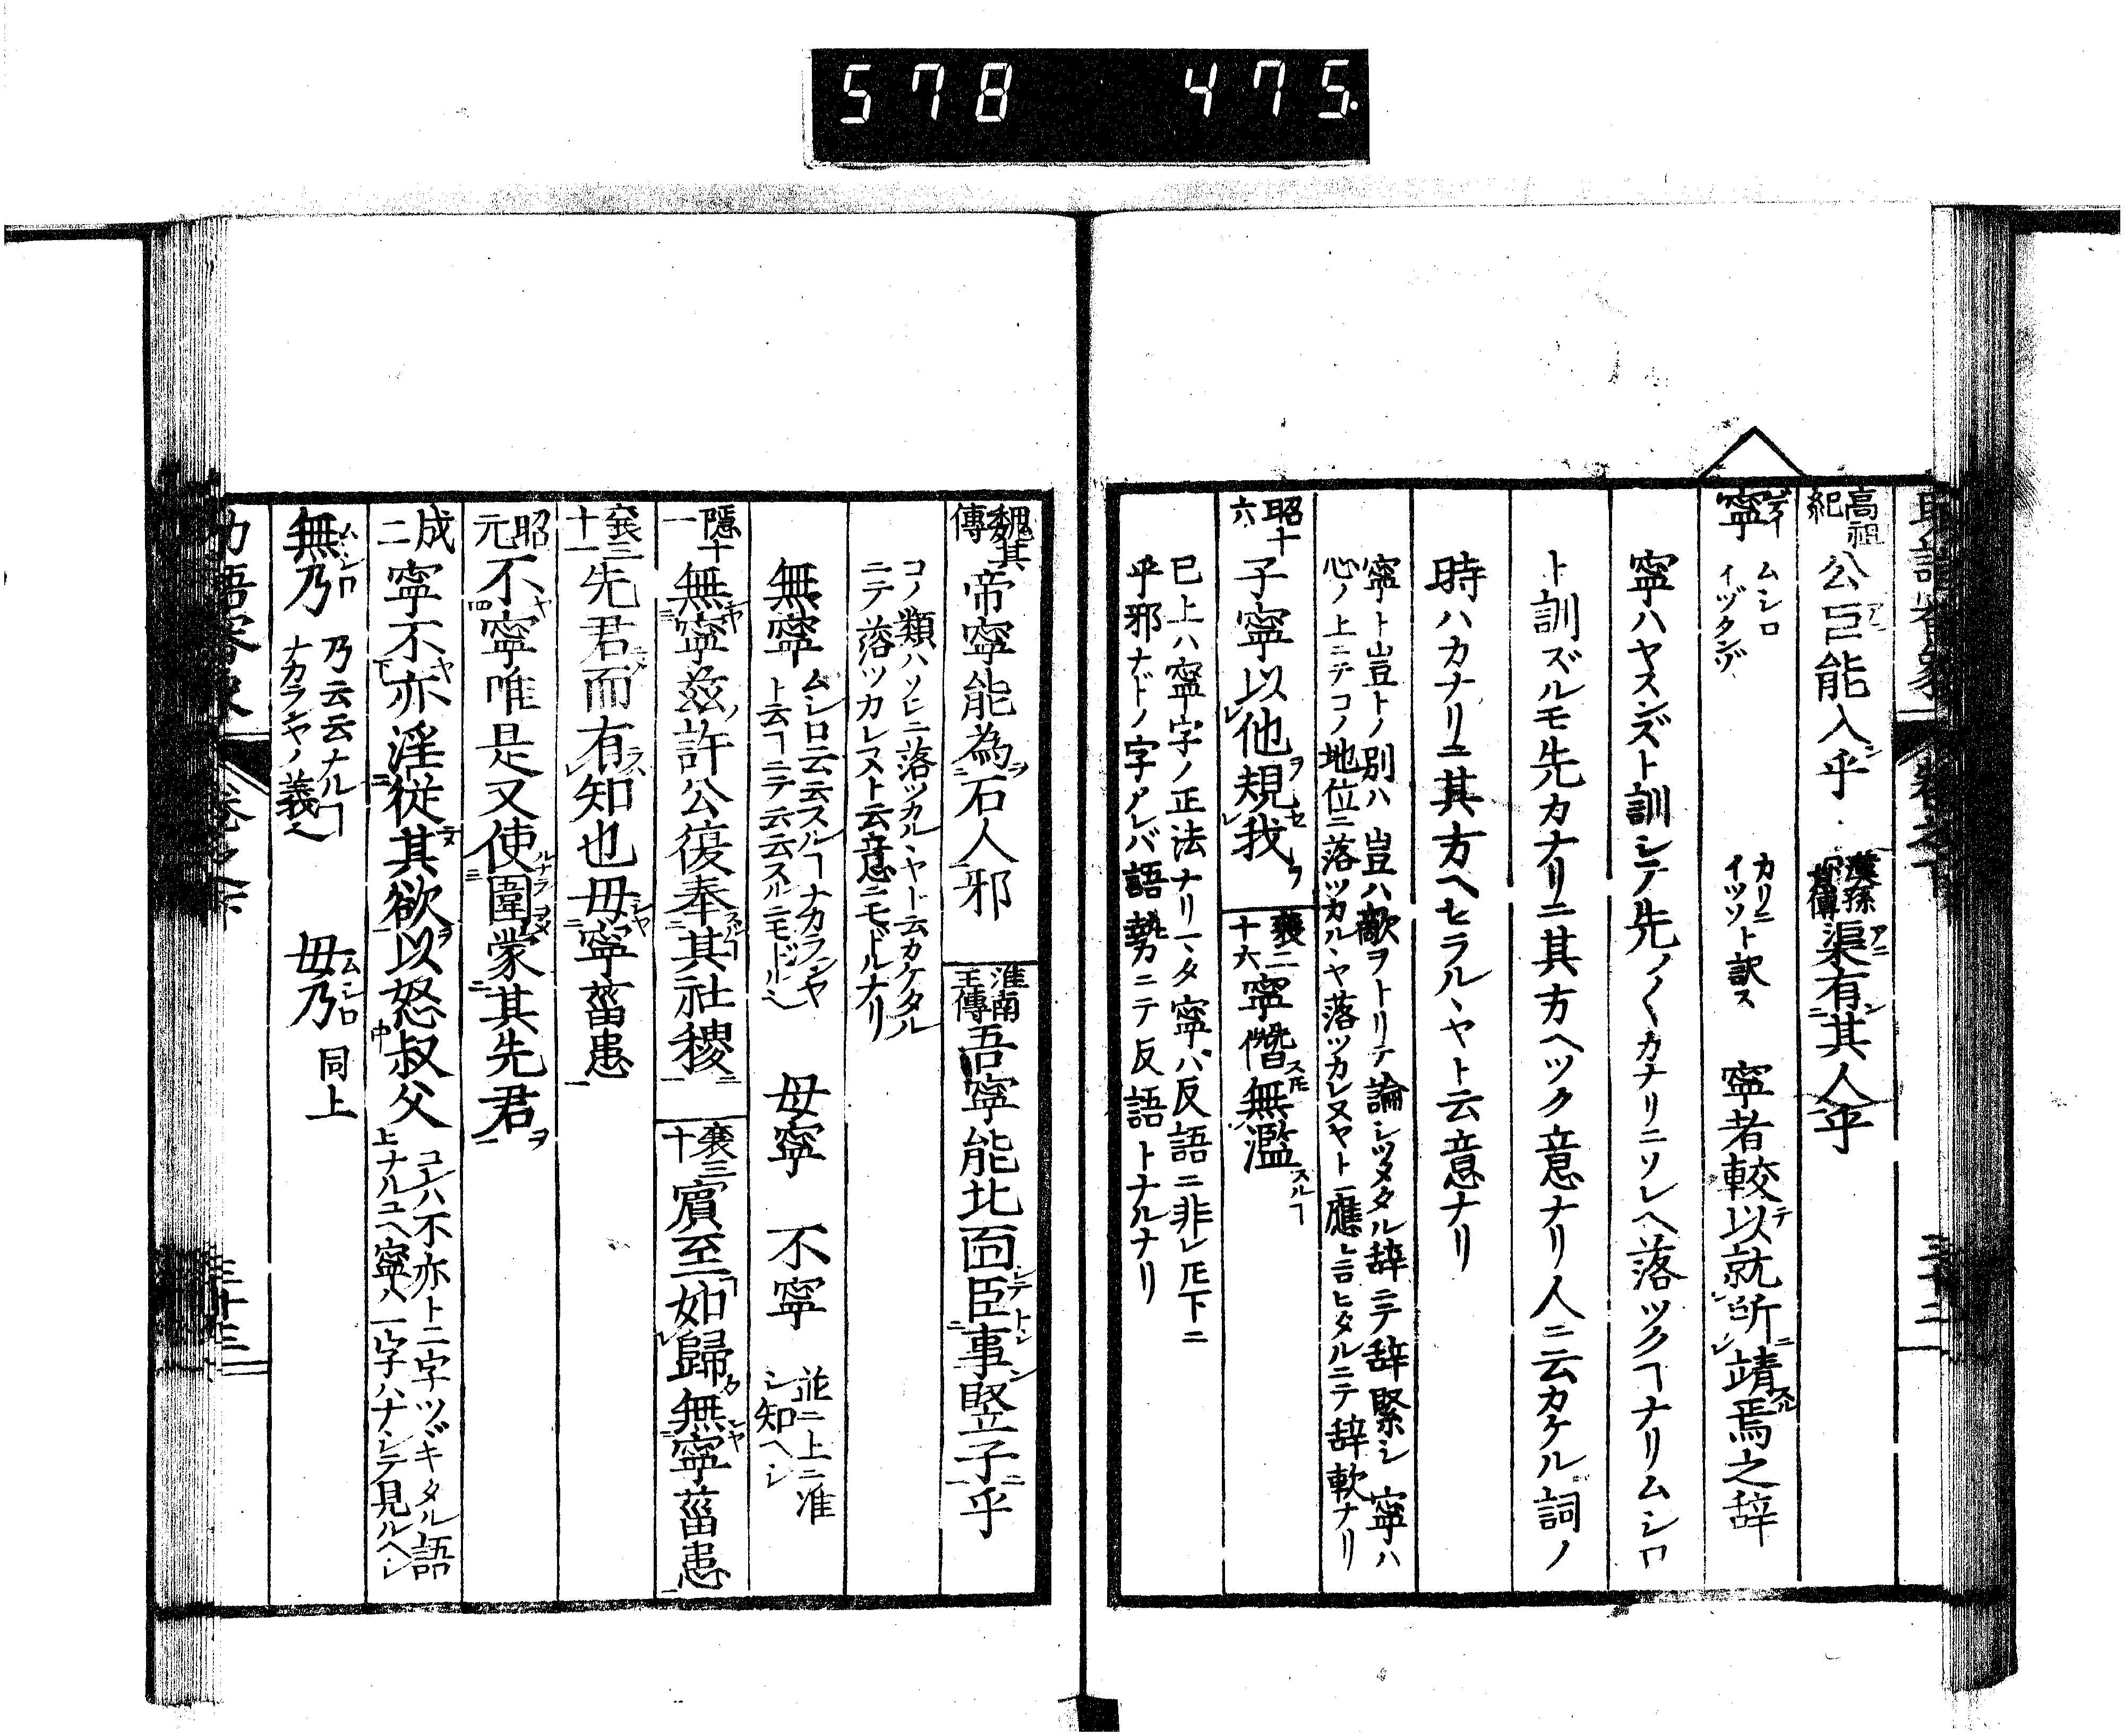 578 475.
高祖紀 公巨能入乎 漢孫寶傳 渠有其人乎
寧 ムシロ イヅクンゾ カリニ イツソト訳ス 寧者較以就所靖焉之辞
寧ハヤスンズト訓シテ先ノ〱カナリニソレヘ落ツクヿナリムシロ
ト訓ズルモ先カナリニ其方ヘツク意ナリ人ニ云カケル詞ノ
時ハカナリニ其方ヘセラルヽヤト云意ナリ
寧ト豈トノ別ハ豈ハ敵ヲトリテ論シツメタル辞ニテ辞緊シ寧ハ
心ノ上ニテコノ地位ニ落ツカルヽヤ落ツカレヌヤト應レ言ヒタルニテ辞軟ナリ
昭十六 子寧以他規我 襄二十六 寧僭無濫
已上ハ寧字ノ正法ナリ一タ寧ハ反語ニ非レ𪜈下ニ
乎邪ナドノ字アレバ語勢ニテ反語トナルナリ
魏其傳 帝寧能為石人邪 淮南王傳 吾寧能北面臣事豎子乎
コノ類ハソレニ落ツカルヽヤト云カケタル
ニテ落ツカレヌト云意ニモドルナリ
無寧 ムシロ云云スルヿナカランヤ ト云ヿニテ云云スルニモドルヘシ 毋寧 不寧 並ニ上ニ准シ知ヘシ
隱十一 無寧茲許公復奉其社稷 襄三十 賓至如歸無寧菑患
襄三十一 先君而有知也毋寧菑患
昭元 不寧唯是又使圍蒙其先君
成二 寧不亦淫從其欲以怒叔父 コレハ不亦ト二字ツヾキタル語 上ナルユヘ寧ハ一字ハナシテ見ルヘシ
無乃 ムシロ 乃云云ナルヿ ナカランヤノ義ヘ 毋乃 ムシロ 同上
三十三